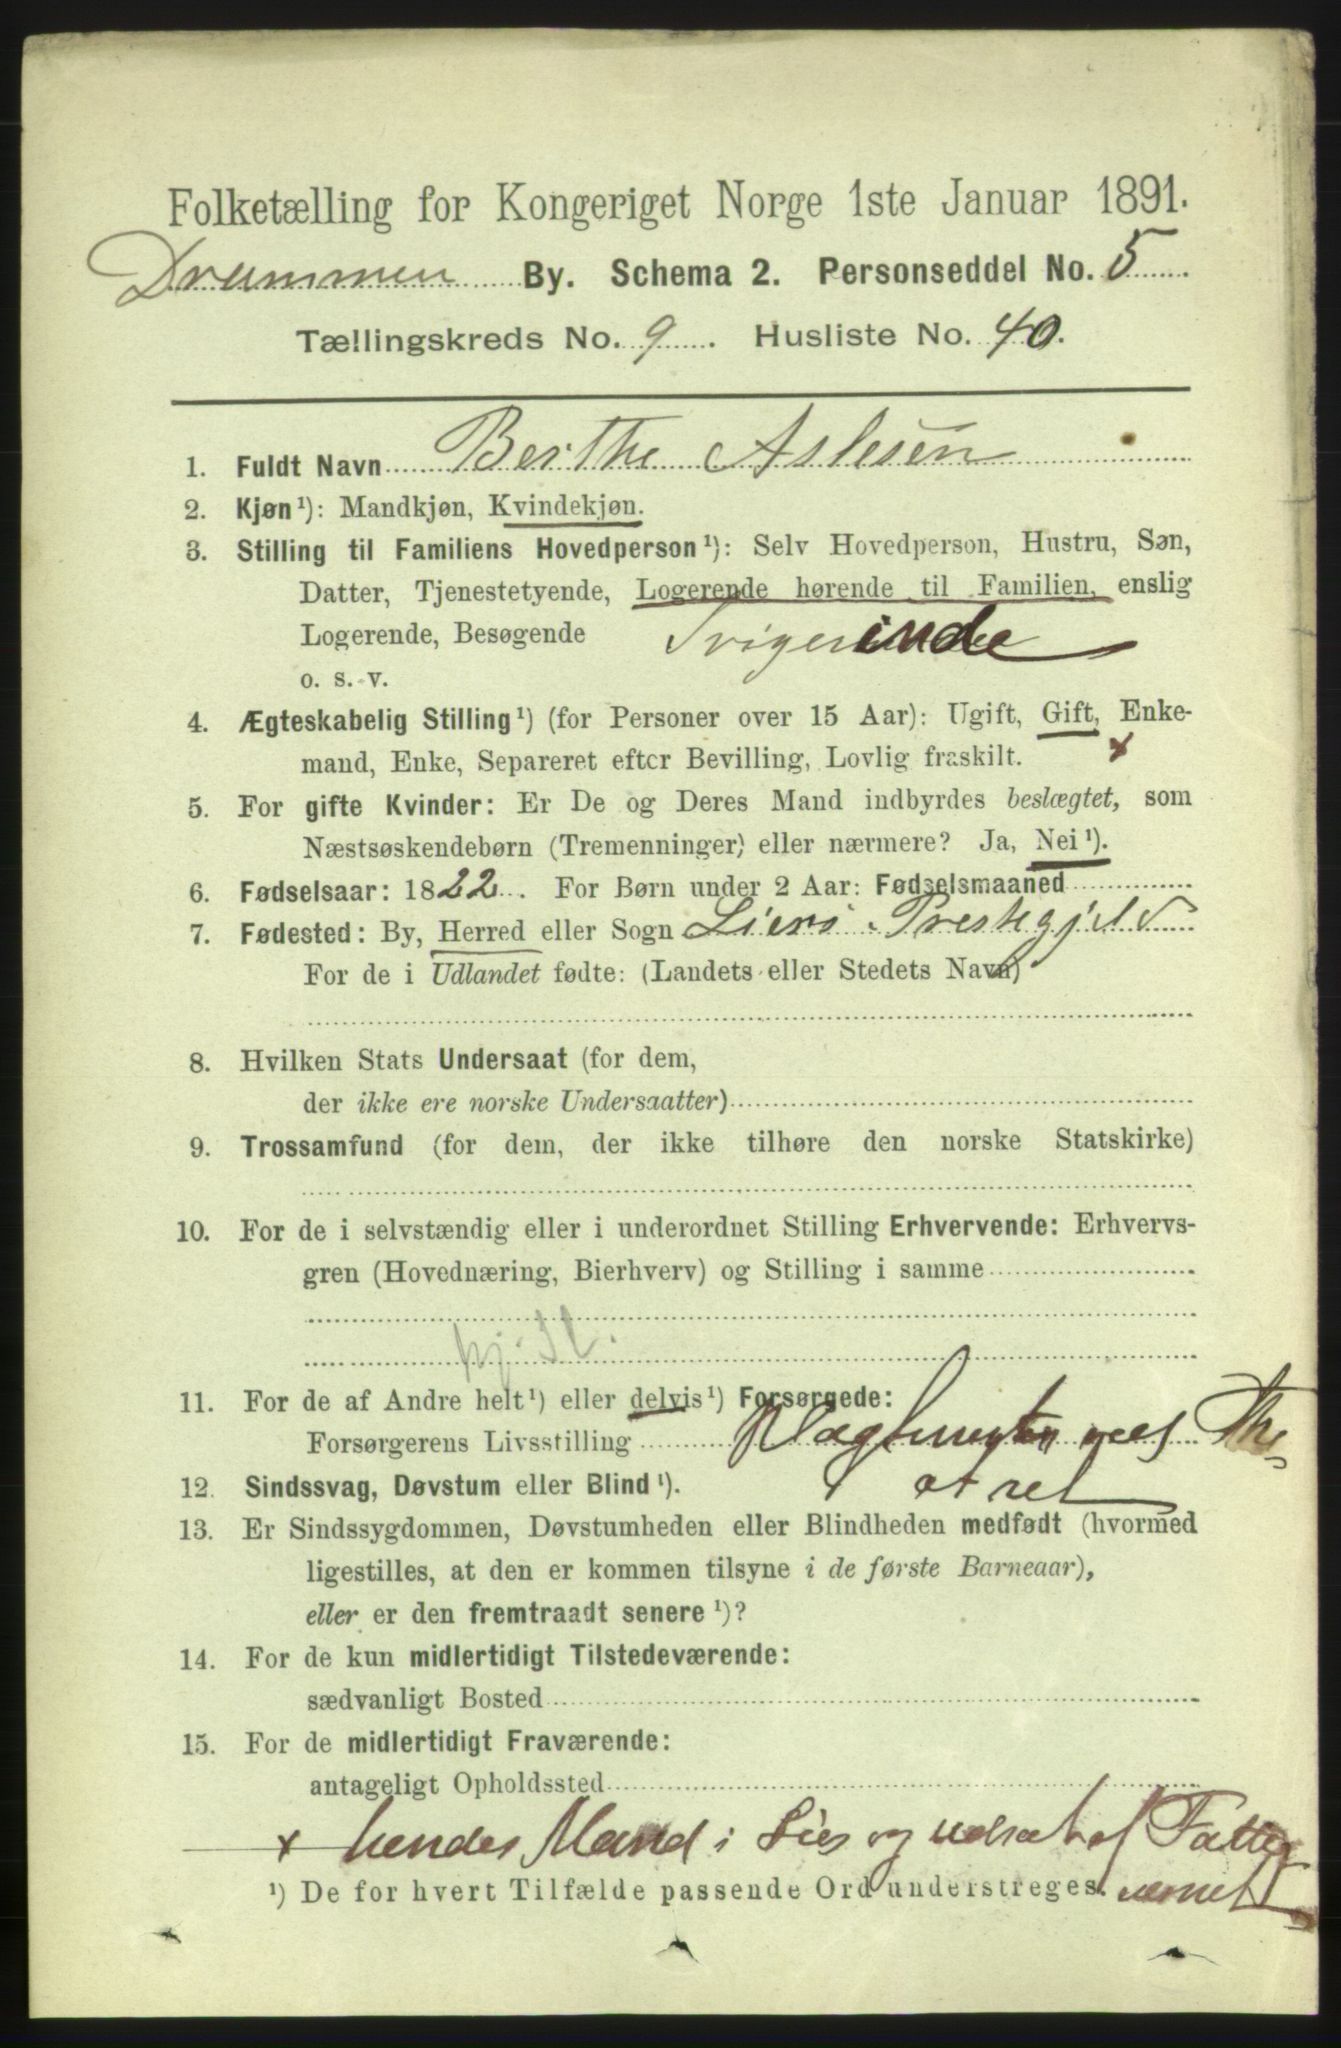 Folketælling for Kongeriget Norge 1ste Januar 1891.
Drammen By. Schema 2. Personseddel No. 5
Tællingskreds No. 9. Husliste No. 40.
1. Fuldt Navn Berthe Aslesen
2. Kjøn¹): Mandkjøn, Kvindekjøn.
3. Stilling til Familiens Hovedperson¹): Selv Hovedperson, Hustru, Søn,
Datter, Tjenestetyende, Logerende hørende til Familien, enslig
Logerende, Besøgende Svigerinde
o. s. v.
4. Ægteskabelig Stilling¹) (for Personer over 15 Aar): Ugift, Gift, Enke-
mand, Enke, Separeret efter Bevilling, Lovlig fraskilt. x
5. For gifte Kvinder: Er De og Deres Mand indbyrdes beslægtet, som
Næstsøskendebørn (Tremenninger) eller nærmere? Ja, Nei¹).
6. Fødselsaar: 1822. For Børn under 2 Aar: Fødselsmaaned
7. Fødested: By, Herred eller Sogn Liers Prestegjeld
For de i Udlandet fødte: (Landets eller Stedets Navn)
8. Hvilken Stats Undersaat (for dem,
der ikke ere norske Undersaatter)
9. Trossamfund (for dem, der ikke tilhøre den norske Statskirke)
10. For de i selvstændig eller i underordnet Stilling Erhvervende: Erhvervs-
gren (Hovednæring, Bierhverv) og Stilling i samme
11. For de af Andre helt¹) eller delvis¹) Forsørgede:
Forsørgerens Livsstilling Vagtmester ved The-
atret
12. Sindssvag, Døvstum eller Blind¹).
13. Er Sindssygdommen, Døvstumheden eller Blindheden medfødt (hvormed
ligestilles, at den er kommen tilsyne i de første Barneaar),
eller er den fremtraadt senere¹)?
14. For de kun midlertidigt Tilstedeværende:
sædvanligt Bosted
15. For de midlertidigt Fraværende:
antageligt Opholdssted
x hendes Mand i Lier og udsat af Fattig
væsnet
¹) De for hvert Tilfælde passende Ord understreges.